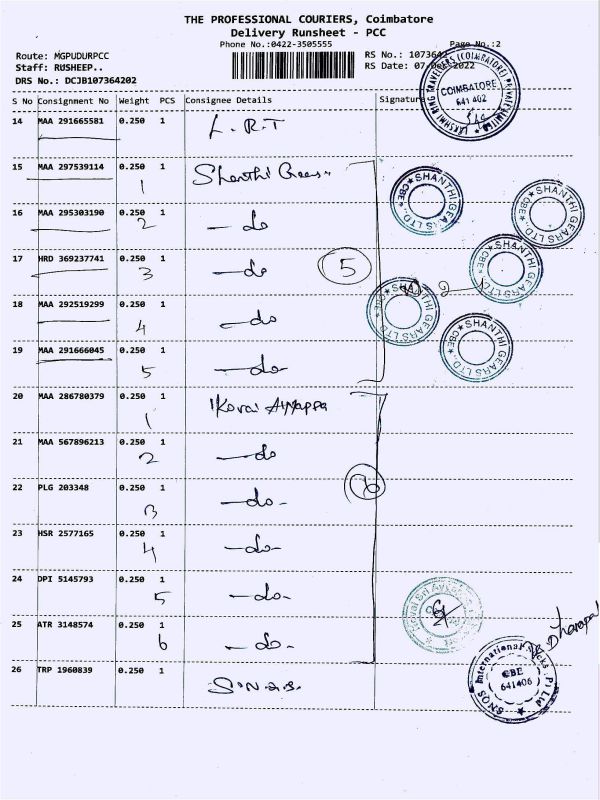 THE PROFESSIONAL COURIERS, Coimbatore
Delivery Runsheet - PCC
Phone No.:0422-3505555
Page No.:2
Route: MGPUDURPCC
RS No.: 1073642
Staff: RUSHEEP..
RS Date: 07-Dec-2022
DRS No.: DCJB107364202
S No Consignment No Weight PCS Consignee Details Signature
14 MAA 291665581 0.250 1 L.R.T
LAKSHMI RING TRAVELLERS (COIMBATORE) PRIVATE LIMITED
COIMBATORE
641 402
15 MAA 297539114 0.250 1 Shanthi Gears
1
SHANTHI GEARS LTD., CBE
SHANTHI GEARS LTD., CBE
16 MAA 295303190 0.250 1 - do
2
17 HRD 369237741 0.250 1 - do
3
5
SHANTHI GEARS LTD., CBE
18 MAA 292519299 0.250 1 - do
4
SHANTHI GEARS LTD., CBE
19 MAA 291666045 0.250 1 - do-
5
SHANTHI GEARS LTD., CBE
20 MAA 286780379 0.250 1 Kovai Ayyappa
1
21 MAA 567896213 0.250 1 - do
2
22 PLG 203348 0.250 1 - do -
3
6
23 HSR 2577165 0.250 1 - do -
4
24 DPI 5145793 0.250 1 - do -
5
25 ATR 3148574 0.250 1 - do -
6
26 TRP 1960839 0.250 1 S.N.Q.S.
SNQS International Socks P Ltd
CBE
641406